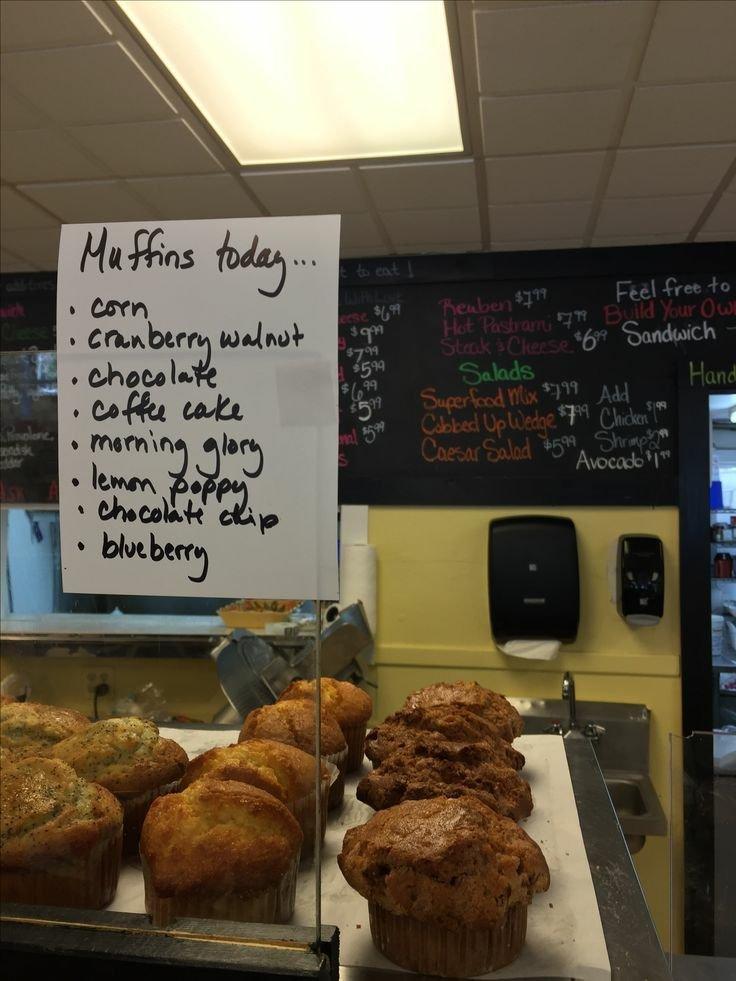 Muffins today...
• corn
• cranberry walnut
• chocolate
• coffee cake
• morning glory
• lemon poppy
• chocolate chip
• blueberry
t to eat!
$6.99
$9.99
$7.99
$5.99
$6.99
$5.99
$5.99
Reuben $7.99
Hot Pastrami $7.99
Steak & Cheese $6.99
Salads
Superfood Mix $7.99
Cobbed Up Wedge $7.99
Caesar Salad $5.99
Feel free to
Build Your Own
Sandwich
Add
Chicken $1.99
Shrimp
Avocado $1.99
Hand